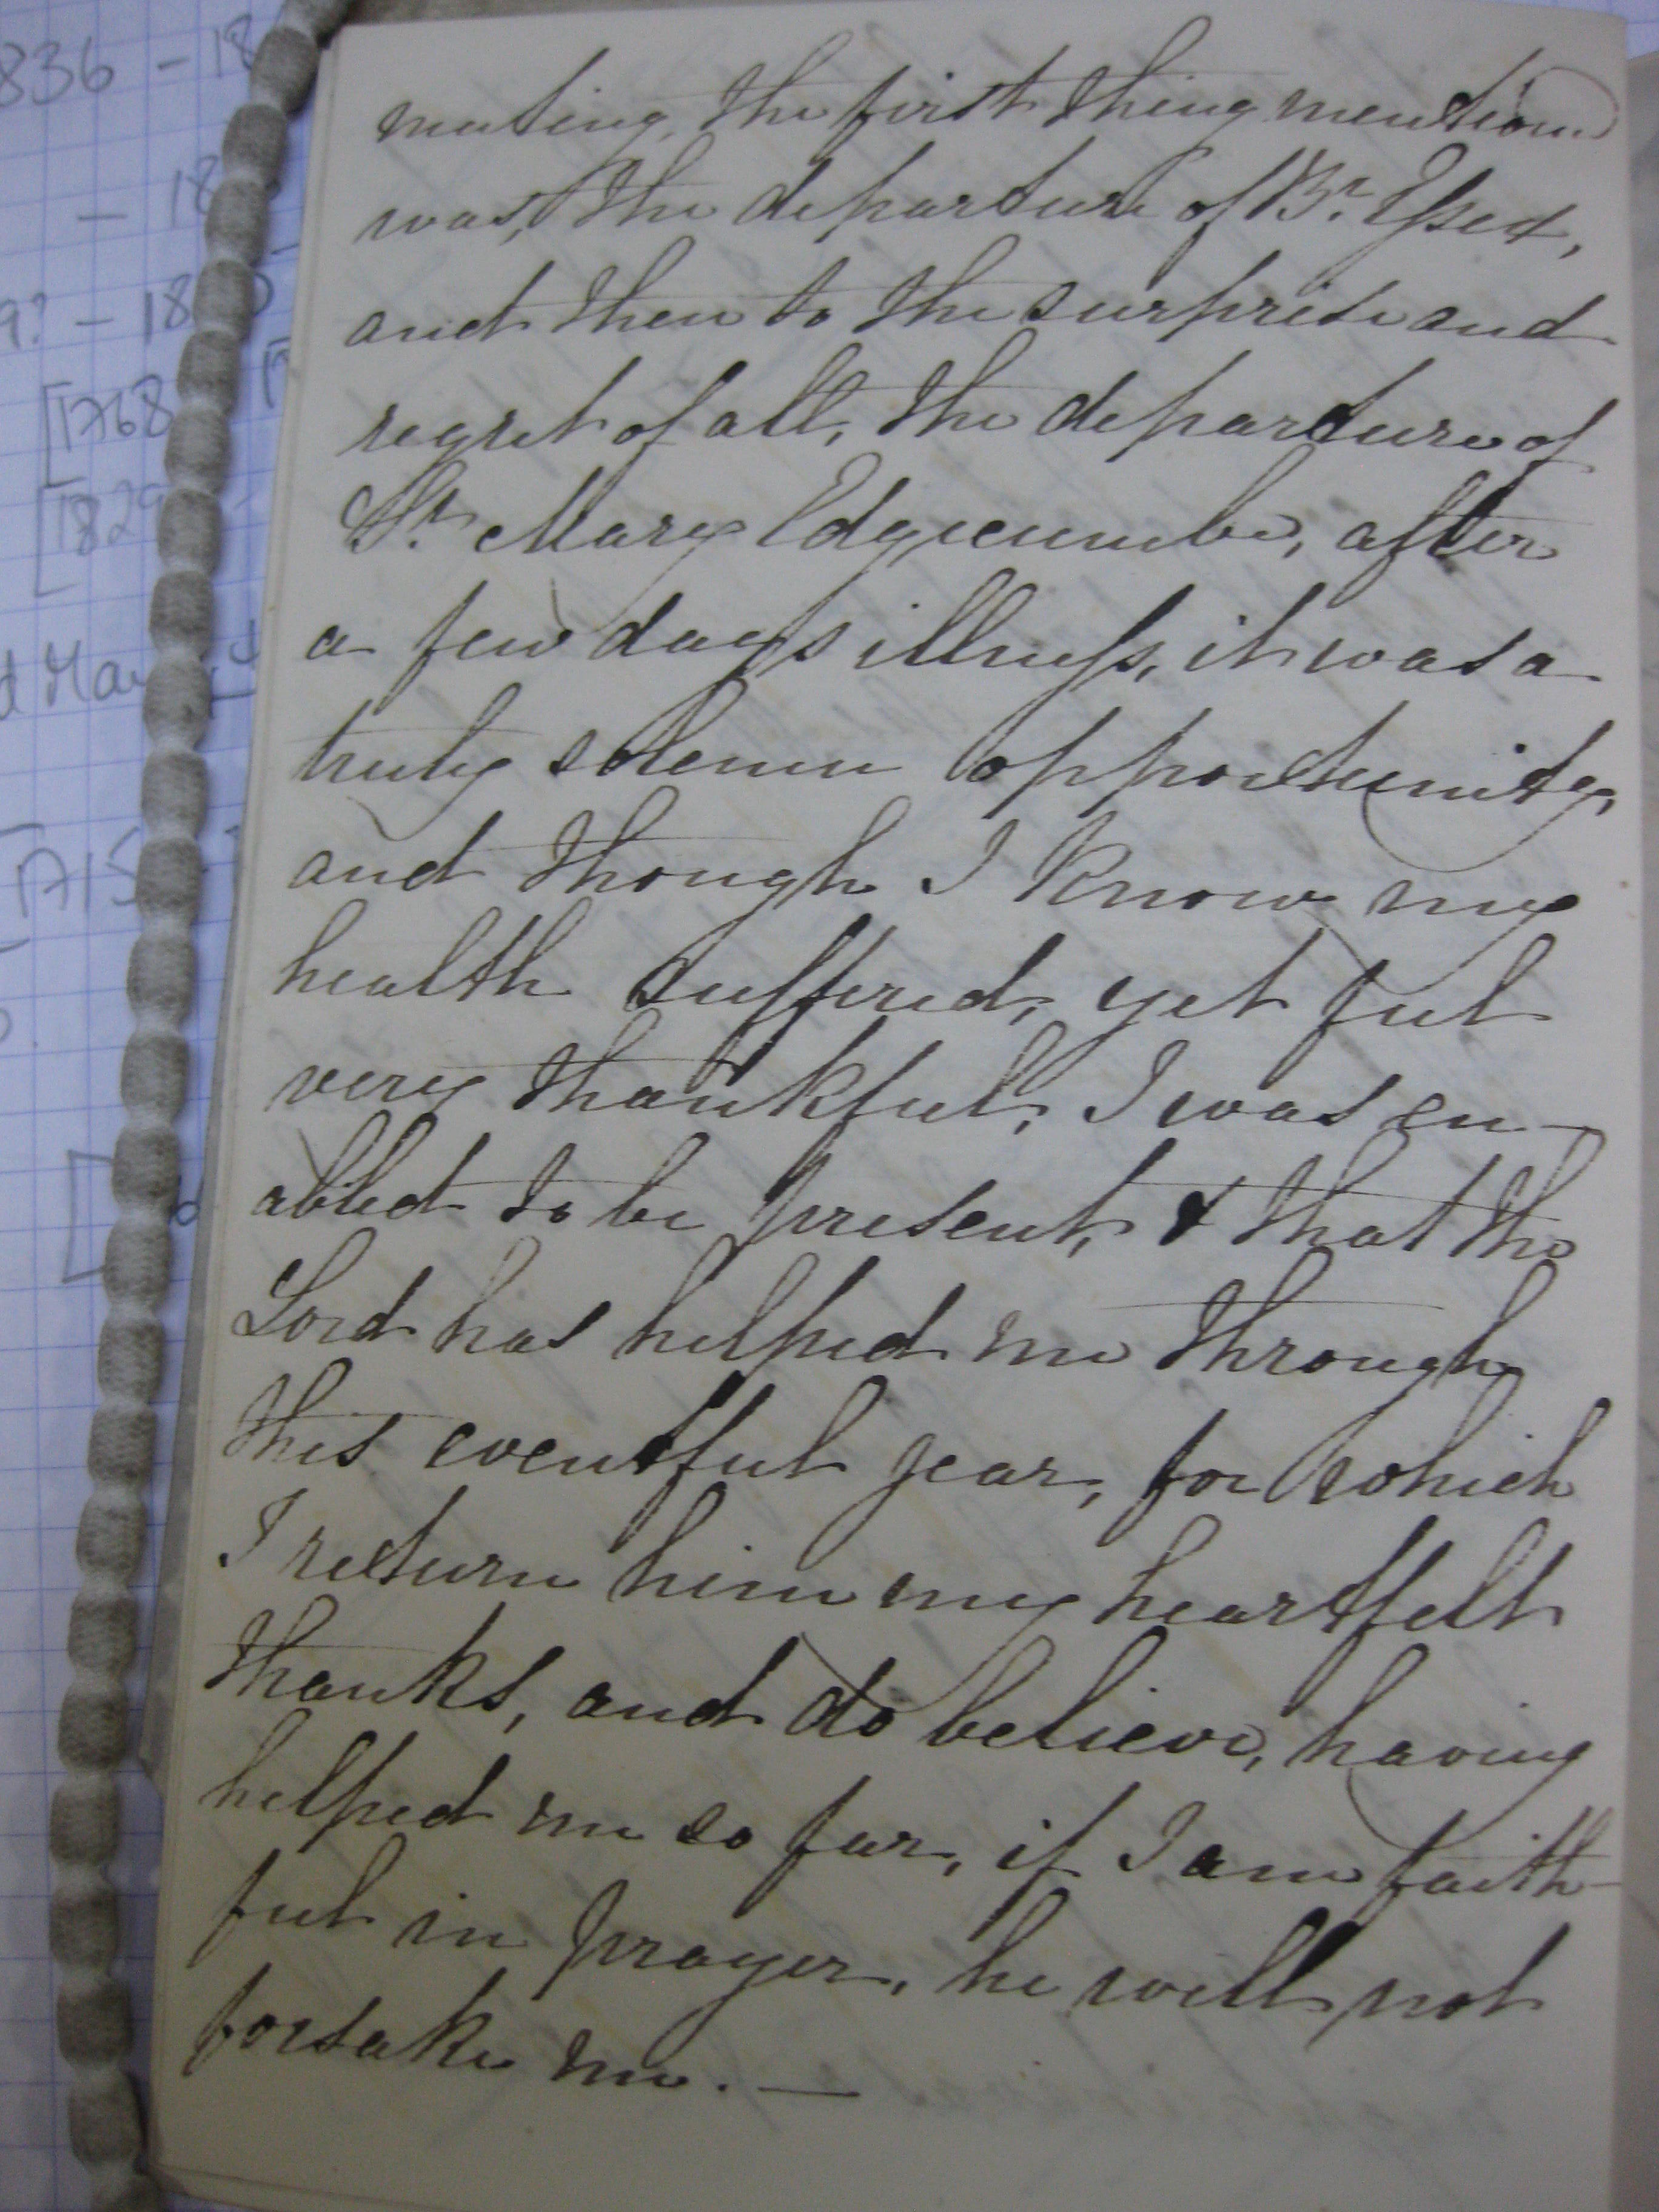 836 - 18
- 18
9? - 18
[1768
[1829
d Mar
1715
meeting, the first thing mention
was, the departure of Br. Ypsed,
and then to the surprise and
regret of all, the departure of
Sr. Mary Edgecumbe, after
a few days illness, it was a
truly solemn opportunity,
and though I know my
health suffered, yet feel
very thankful, I was en-
abled to be present, & that the
Lord has helped me through
this eventful year, for which
I return him my heartfelt
thanks, and do believe, having
helped me so far, if I am faith-
ful in prayer, he will not
forsake me. —